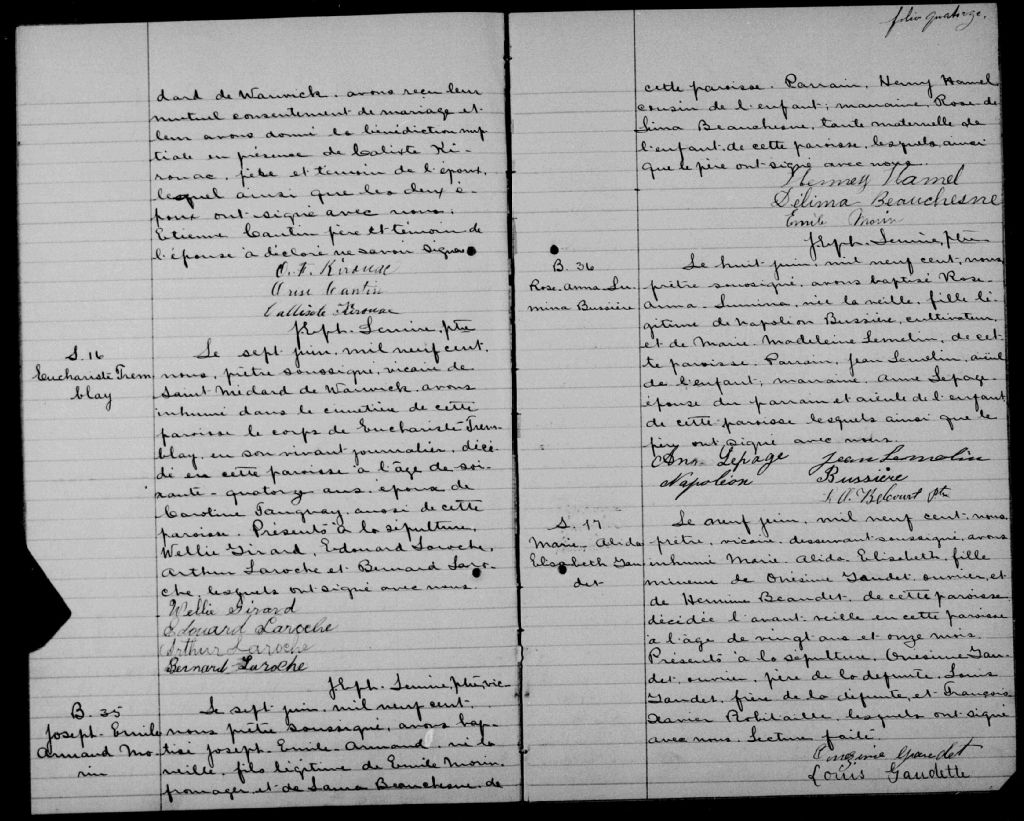 folio quatorze.
dard de Warwick, avons reçu leur
mutuel consentement de mariage et
leur avons donné la bénédiction nup
tiale en présence de Calixte Ki-
rouac, fils et témoin de l'époux,
lequel ainsi que les deux é-
poux ont signé avec nous;
Etienne Cantin père et témoin de
l'épouse a déclaré ne savoir signer
O. F. Kirouac
Cantin
Callixte Kirouac
Jseph. Lemire, ptre
S. 16
Euchariste Trem
blay
Le sept juin, mil neuf cent,
nous, prêtre soussigné, vicaire de
Saint Médard de Warwick, avons
inhumé dans le cimetière de cette
paroisse le corps de Euchariste Trem-
blay, en son vivant journalier, décé-
dé en cette paroisse à l'âge de soi-
xante-quatorze ans, époux de
Caroline Tanguay, aussi de cette
paroisse. Présents à la sépulture,
Wellie Girard, Edouard Laroche,
Arthur Laroche et Bernard Laro-
che, lesquels ont signé avec nous.
Wellie Girard
Edouard Laroche
Arthur Laroche
Bernard Laroche
Jseph. Lemire, ptre, vic
B. 35
Joseph Emile
Armand Mo-
rin
Le sept juin, mil neuf cent,
nous prêtre soussigné, avons bap-
tisé Joseph-Emile-Armand, né la
veille, fils légitime de Emile Morin,
fromager, et de Beauchesne, de
cette paroisse. Parrain, Henry Hamel
cousin de l'enfant; marraine, Rose de
Lima Beauchesne, tante maternelle de
l'enfant, de cette paroisse, lesquels ainsi
que le père ont signé avec nous.
Hamel
Délima Beauchesne
Emile Morin
Jseph. Lemire, ptre
B. 36
Rose-Anna-Lu-
mina Bussière
Le huit juin, mil neuf cent, nous,
prêtre soussigné, avons baptisé Rose-
Anna-Lumina, née la veille, fille lé-
gitime de Napoléon Bussière, cultivateur,
et de Marie Madeleine Lemelin, de cet-
te paroisse. Parrain, Jean Lemelin, aïeul
de l'enfant; marraine, Anne Lepage,
épouse du parrain et aïeule de l'enfant,
de cette paroisse lesquels ainsi que le
père ont signé avec nous.
Ann Lepage Jean Lemelin
Napoléon Bussière
Belcourt Ptr
S. 17
Marie-Alida
Elisabeth Gau
det
Le neuf juin, mil neuf cent, nous
prêtre, vicaire, desservant soussigné, avons
inhumé Marie-Alida-Elisabeth, fille
mineure de Onésime Gaudet, ouvrier, et
de Hermine Beaudet, de cette paroisse,
décédée l'avant-veille en cette paroisse
à l'âge de vingt ans et onze mois.
Présents à la sépulture, Onésime Gau-
det, ouvrier, père de la défunte, Louis
Gaudet, frère de la défunte, et François
Xavier Robitaille, lesquels ont signé
avec nous. Lecture faite.
Onesime Gaudet
Louis Gaudette